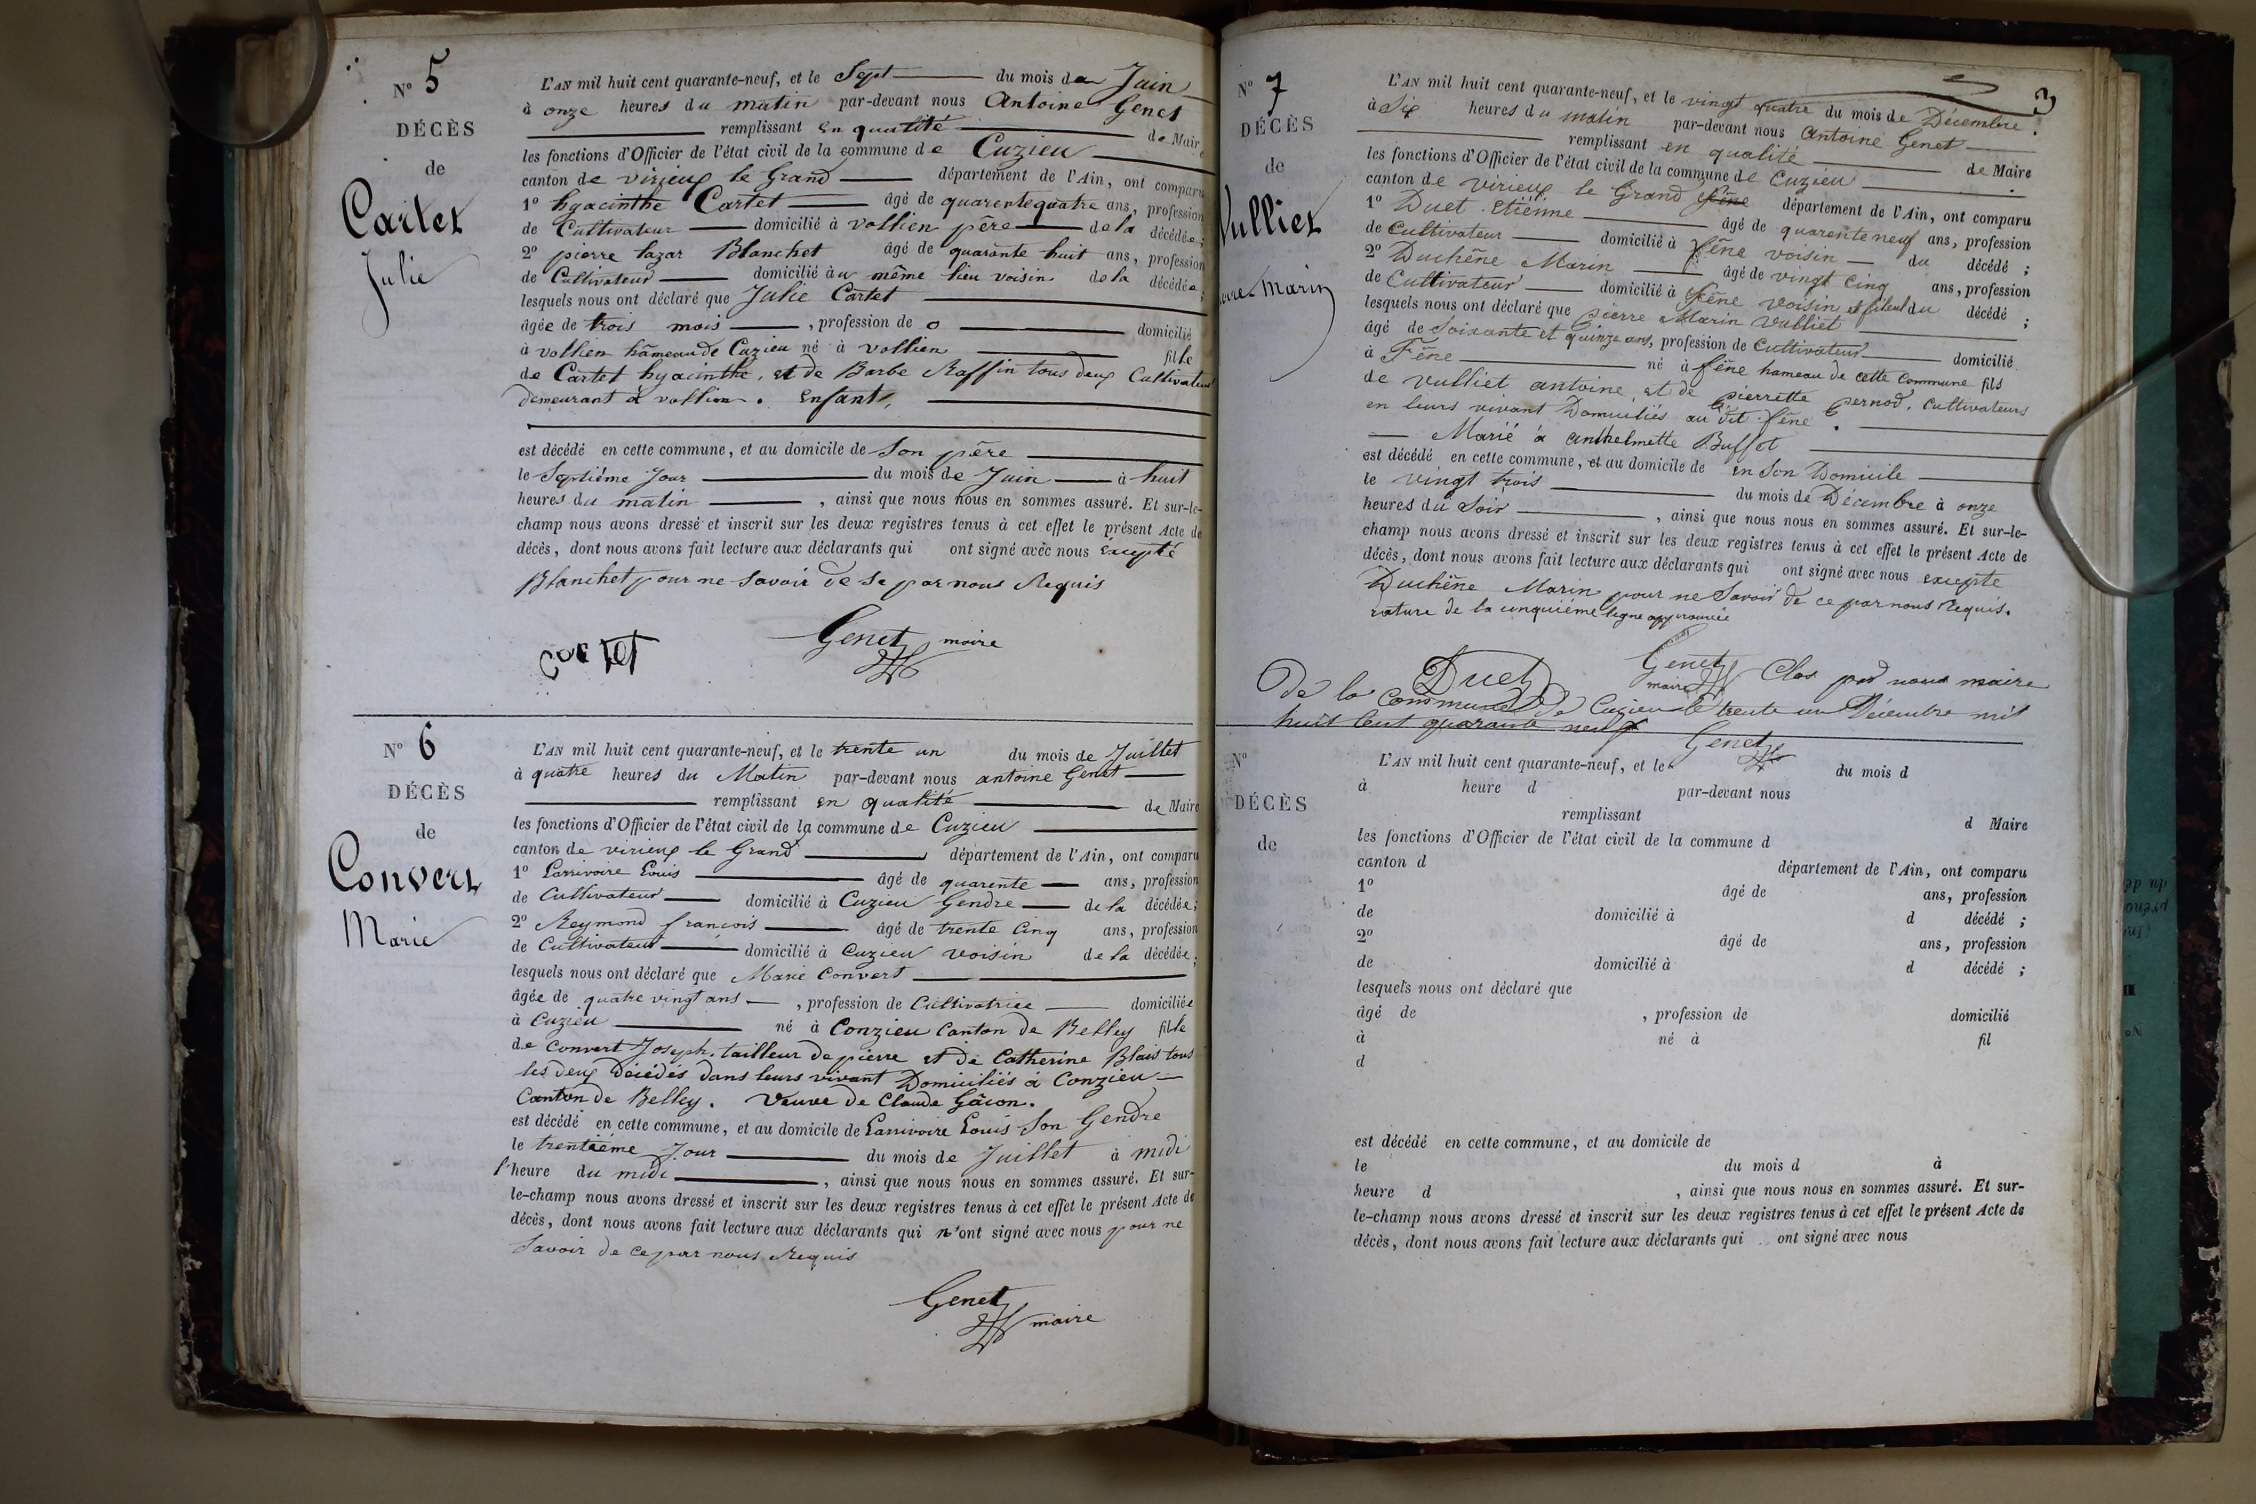 N° 5
DÉCÈS
de
Cartet
Julie
L'AN mil huit cent quarante-neuf, et le Sept du mois de Juin
à onze heures du matin par-devant nous Antoine Genet
remplissant en qualité de Maire
les fonctions d'Officier de l'état civil de la commune de Cuzieu
canton de virieux le Grand département de l'Ain, ont comparu
1° hyacinthe Cartet âgé de quarente quatre ans, profession
de Cultivateur domicilié à vollien père de la décédée ;
2° pierre lazar Blanchet âgé de quarante huit ans, profession
de Cultivateur domicilié au même lieu voisin de la décédée ;
lesquels nous ont déclaré que Julie Cartet
âgée de trois mois , profession de o domicilié
à vollien hâmeau de Cuzieu né à vollien fille
de Cartet hyacinthe, et de Barbe Raffin tous deux Cultivateurs
demeurant à vollien. Enfant,
est décédé en cette commune, et au domicile de Son père
le Septième Jour du mois de Juin à huit
heures du matin , ainsi que nous nous en sommes assuré. Et sur-le-
champ nous avons dressé et inscrit sur les deux registres tenus à cet effet le présent Acte de
décès, dont nous avons fait lecture aux déclarants qui ont signé avec nous excepté
Blanchet pour ne Savoir de se par nous Requis
Cartet Genet maire
N° 6
DÉCÈS
de
Convert
Marie
L'AN mil huit cent quarante-neuf, et le trente un du mois de Juillet
à quatre heures du Matin par-devant nous antoine Genet
remplissant en qualité de Maire
les fonctions d'Officier de l'état civil de la commune de Cuzieu
canton de virieux le Grand département de l'Ain, ont comparu
1° Larrivoire Louis âgé de quarente ans, profession
de Cultivateur domicilié à Cuzieu Gendre de la décédée ;
2° Reymond françois âgé de trente Cinq ans, profession
de Cultivateur domicilié à Cuzieu voisin de la décédée ;
lesquels nous ont déclaré que Marie Convert
âgée de quatre vingt ans , profession de Cultivatrice domiciliée
à Cuzieu né à Conzieu Canton de Belley fille
de Convert Joseph, tailleur de pierre et de Catherine Blais tous
les deux Décédés dans leurs vivant Domiciliés à Conzieu
Canton de Belley. Veuve de Claude Gâcon.
est décédé en cette commune, et au domicile de Larrivoire Louis Son Gendre
le trentième Jour du mois de Juillet à midi
l'heure du midi , ainsi que nous nous en sommes assuré. Et sur-
le-champ nous avons dressé et inscrit sur les deux registres tenus à cet effet le présent Acte de
décès, dont nous avons fait lecture aux déclarants qui n'ont signé avec nous pour ne
Savoir de ce par nous Requis
Genet maire
3
N° 7
DÉCÈS
de
Vulliet
Marin
L'AN mil huit cent quarante-neuf, et le vingt quatre du mois de Décembre.
à Six heures du matin par-devant nous Antoine Genet
remplissant en qualité de Maire
les fonctions d'Officier de l'état civil de la commune de Cuzieu
canton de virieux le Grand fêne département de l'Ain, ont comparu
1° Duet Etiénne âgé de quarente neuf ans, profession
de Cultivateur domicilié à fêne voisin du décédé ;
2° Duchêne Marin âgé de vingt Cinq ans, profession
de Cultivateur domicilié à fêne voisin et fileul du décédé ;
lesquels nous ont déclaré que pierre Marin Vulliet
âgé de Soixante et quinze ans, profession de Cultivateur domicilié
à Fêne né à fêne hameau de cette Commune fils
de vulliet antoine, et de pierrette pernod, Cultivateurs
en leurs vivant Domiciliés au dit fêne.
Marié à Anthelmette Buffet
est décédé en cette commune, et au domicile de en Son Domicile
le vingt trois du mois de Décembre à onze
heures du Soir , ainsi que nous nous en sommes assuré. Et sur-le-
champ nous avons dressé et inscrit sur les deux registres tenus à cet effet le présent Acte de
décès, dont nous avons fait lecture aux déclarants qui ont signé avec nous excepte
Duchêne Marin pour ne Savoir de ce par nous Requis.
rature de la cinquième ligne approuvée
Duet Genet maire Clos par nous maire
De la Commune de Cuzieu le trente un Décembre mil
huit Cent quarante neuf
Genet
N°
DÉCÈS
de
L'AN mil huit cent quarante-neuf, et le du mois d
à heure d par-devant nous
remplissant d Maire
les fonctions d'Officier de l'état civil de la commune d
canton d département de l'Ain, ont comparu
1° âgé de ans, profession
de domicilié à d décédé ;
2° âgé de ans, profession
de domicilié à d décédé ;
lesquels nous ont déclaré que
âgé de , profession de domicilié
à né à fil
d
est décédé en cette commune, et au domicile de
le du mois d à
heure d , ainsi que nous nous en sommes assuré. Et sur-
le-champ nous avons dressé et inscrit sur les deux registres tenus à cet effet le présent Acte de
décès, dont nous avons fait lecture aux déclarants qui ont signé avec nous